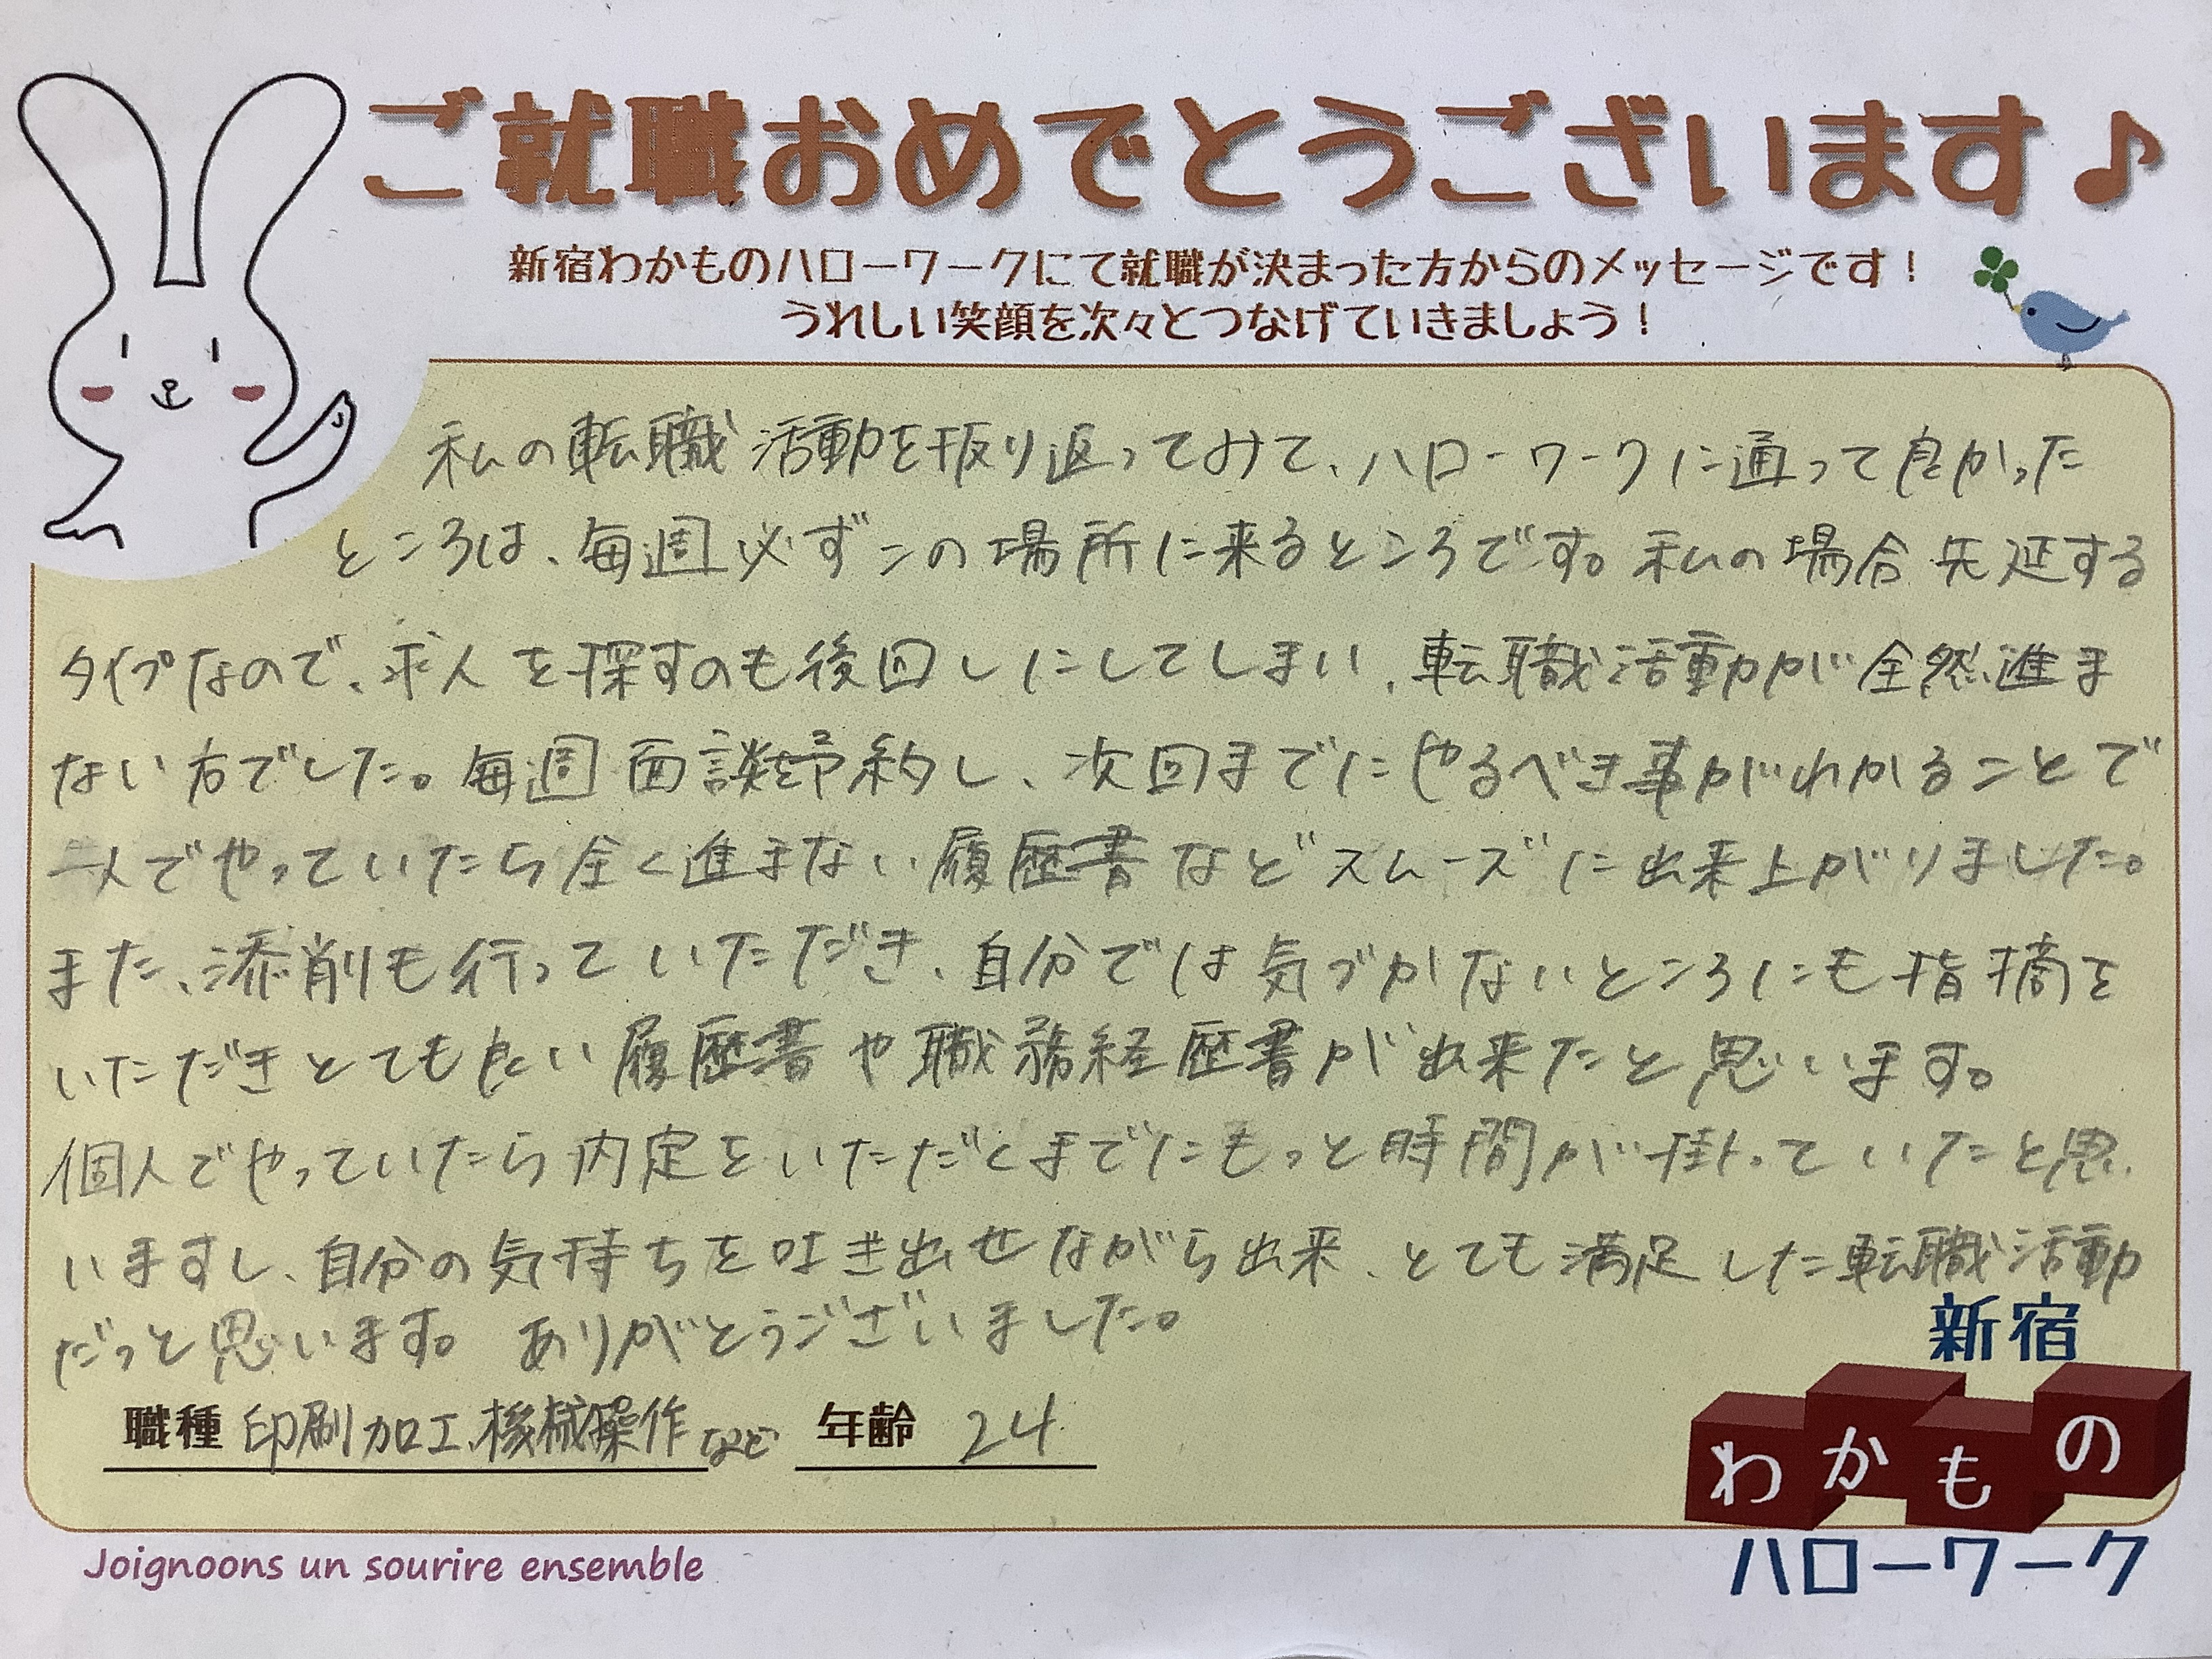 ご就職おめでとうございます♪
新宿わかものハローワークにて就職が決まった方からのメッセージです！
うれしい笑顔を次々とつなげていきましょう！
私の転職活動を振り返ってみて、ハローワークに通って良かった
ところは、毎週必ずこの場所に来るところです。私の場合先延する
タイプなので、求人を探すのも後回しにしてしまい、転職活動が全然進ま
ない方でした。毎週面談予約し、次回までにやるべき事がわかることで
一人でやっていたら全く進まない履歴書などスムーズに出来上がりました。
また、添削も行っていただき、自分では気づかないところにも指摘を
いただきとても良い履歴書や職務経歴書が出来たと思います。
個人でやっていたら内定をいただくまでにもっと時間が掛っていたと思
いますし、自分の気持ちを吐き出せながら出来、とても満足した転職活動
だっと思います。 ありがとうございました。
職種 印刷加工、機械操作など 年齢 24
新宿
わかもの
ハローワーク
Joignoons un sourire ensemble